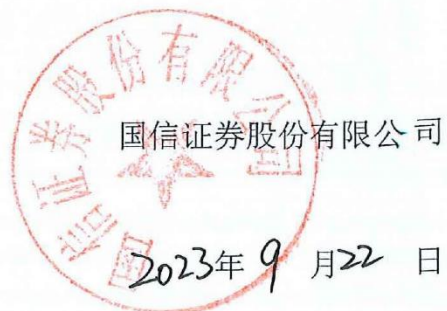 国信证券股份有限公司
国信证券股份有限公司
2023年9月22日